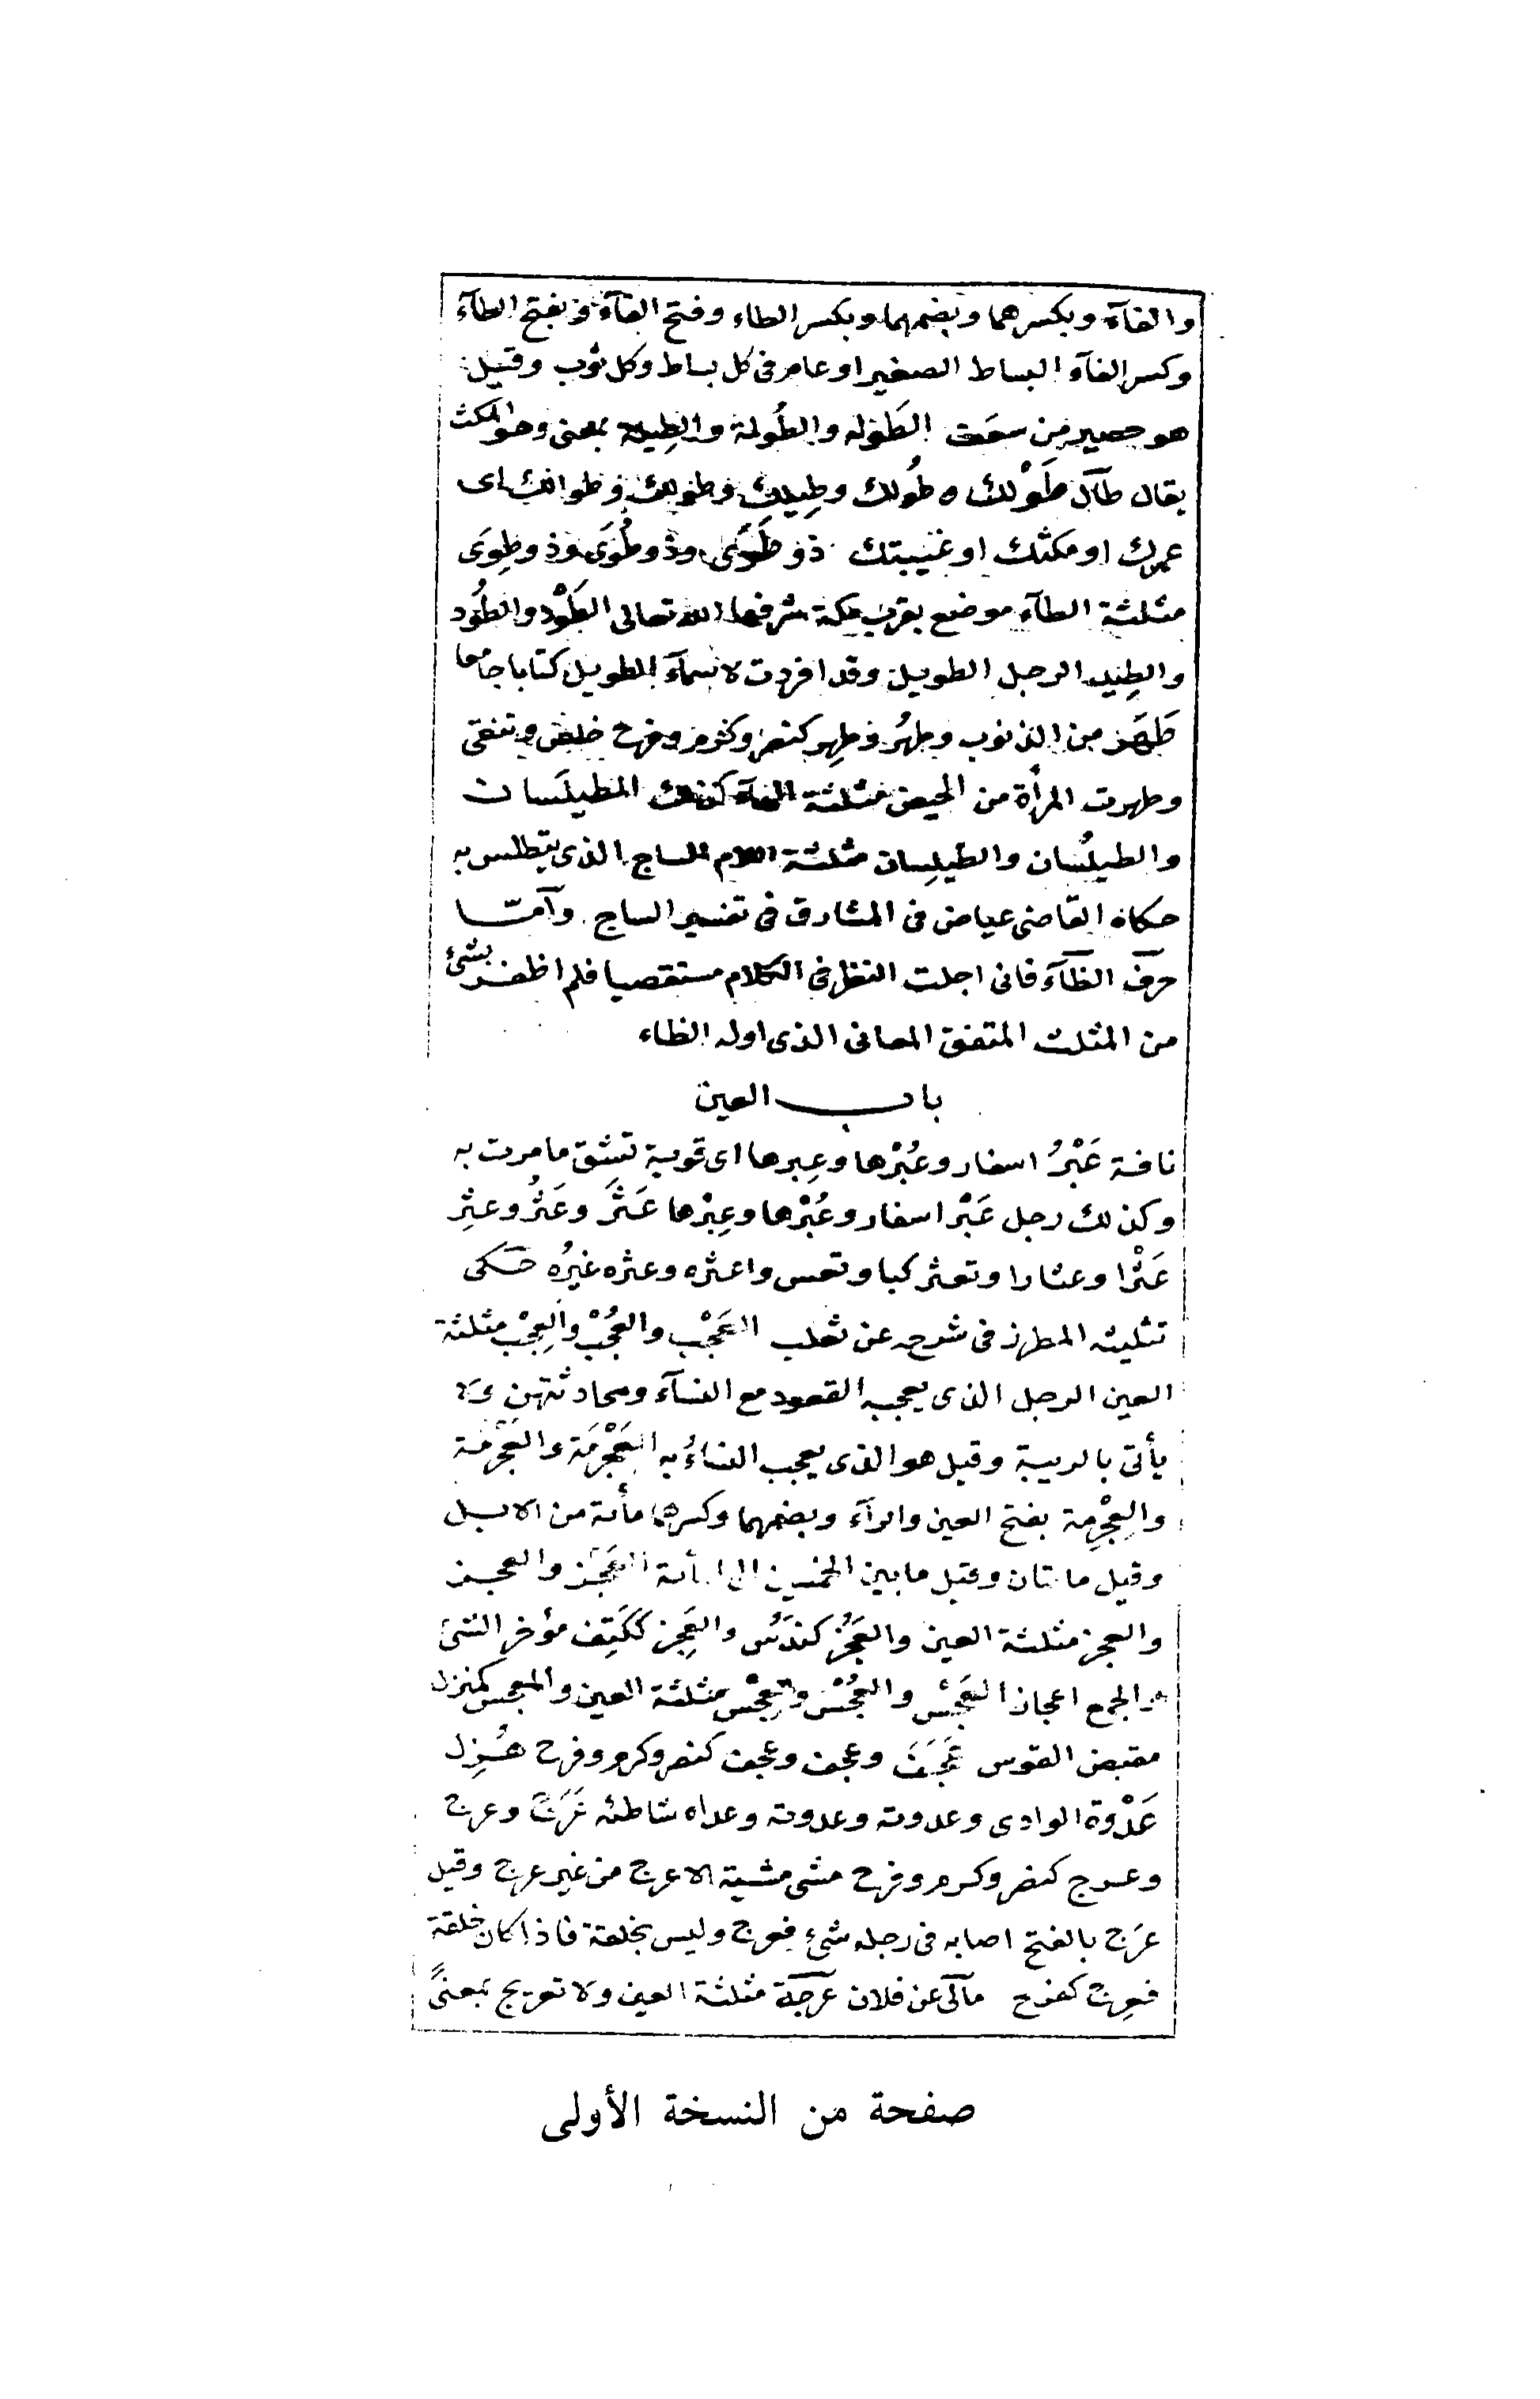 والفآء وبكسرهما وبضمهما وبكسر الطاء وفتح الفآء وبفتح الطآء
وكسر الفآء البساط الصغير او عام فى كل بساط وكل ثوب وقيل
هو حصير من سعف الطَوله والطُولة والطِيلة بمعنى وهو المكث
يقال طآل طَوْلك وطُولك وطِيلك وطولك وطوالك اى
عمرك او مكثك او غيبتك ذو طَوَى وذو طُوَى وذو طِوَى
مثلثة الطآء موضع بقرب مكة شرفها الله تعالى الطَوْد والطُود
والطِيد الرجل الطويل وقد افردت لاسمآء الطويل كتابا جامعا
طَهَر من الذنوب وطهُر وطهِر كنصر وكرم وفرح خلص وتنقى
وطهرت المرأة من الحيض مثلثة الهآء كذلك الطيلَسان
والطيلُسان والطيلِسان مثلثة اللام الساج الذى يتطلس به
حكاه القاضى عياض فى المشارق فى تفسير الساج وآمّا
حرف الظآء فانى اجلت النظر فى الكلام مستقصيا فلم اظفر بشئ
من المثلث المتفق المعانى الذى اوله الظاء
باب العين
ناقة عَبْرُ اسفار وعُبْرها وعِبرها اى قوية تشق ما مرت به
وكذلك رجل عَبْر اسفار وعُبْرها وعِبْرها عَثَر وعَثُر وعثِر
عَثْرا وعثارا وتعثر كبا وتعس واعثره وعثره غيرُه حكى
تثليثه المطرز فى شرحه عن ثعلب العَجْب والعُجْب والعِجْب مثلثة
العين الرجل الذى يعجبه القعود مع النسآء ومحادثتهن ولا
يأتى بالريبة وقيل هو الذى يعجب النساءُ به العَجْرَمَة والعُجْرُمَة
والعِجْرِمة بفتح العين والرآء وبضمهما وكسرهما مأئة من الابل
وقيل مائتان وقيل ما بين الخمسين الى المأئة العَجْز والعجز
والعجز مثلثة العين والعَجُز كندَُس والعَجِز ككَتِف مؤخر الشئ
والجمع اعجاز العَجْس والعُجْس والعِجْس مثلثة العين والمعجس كمنزل
مقبض القوس عَجَفَ وعجف وعجف كنصر وكرم وفرح هُزِل
عَدْوة الوادى وعدوته وعدوته وعداه شاطئه عَرَج وعرج
وعرج كنصر وكرم وفرح مشى مشية الاعرج من غير عرج وقيل
عرَج بالفتح اصابه فى رجله شئ فعرج وليس بخلقة فاذا كان خلقة
فعرِج كفرح مآلى عن فلان عرجة مثلثة العين ولا تعريج بمعنىً
صفحة من النسخة الأولى